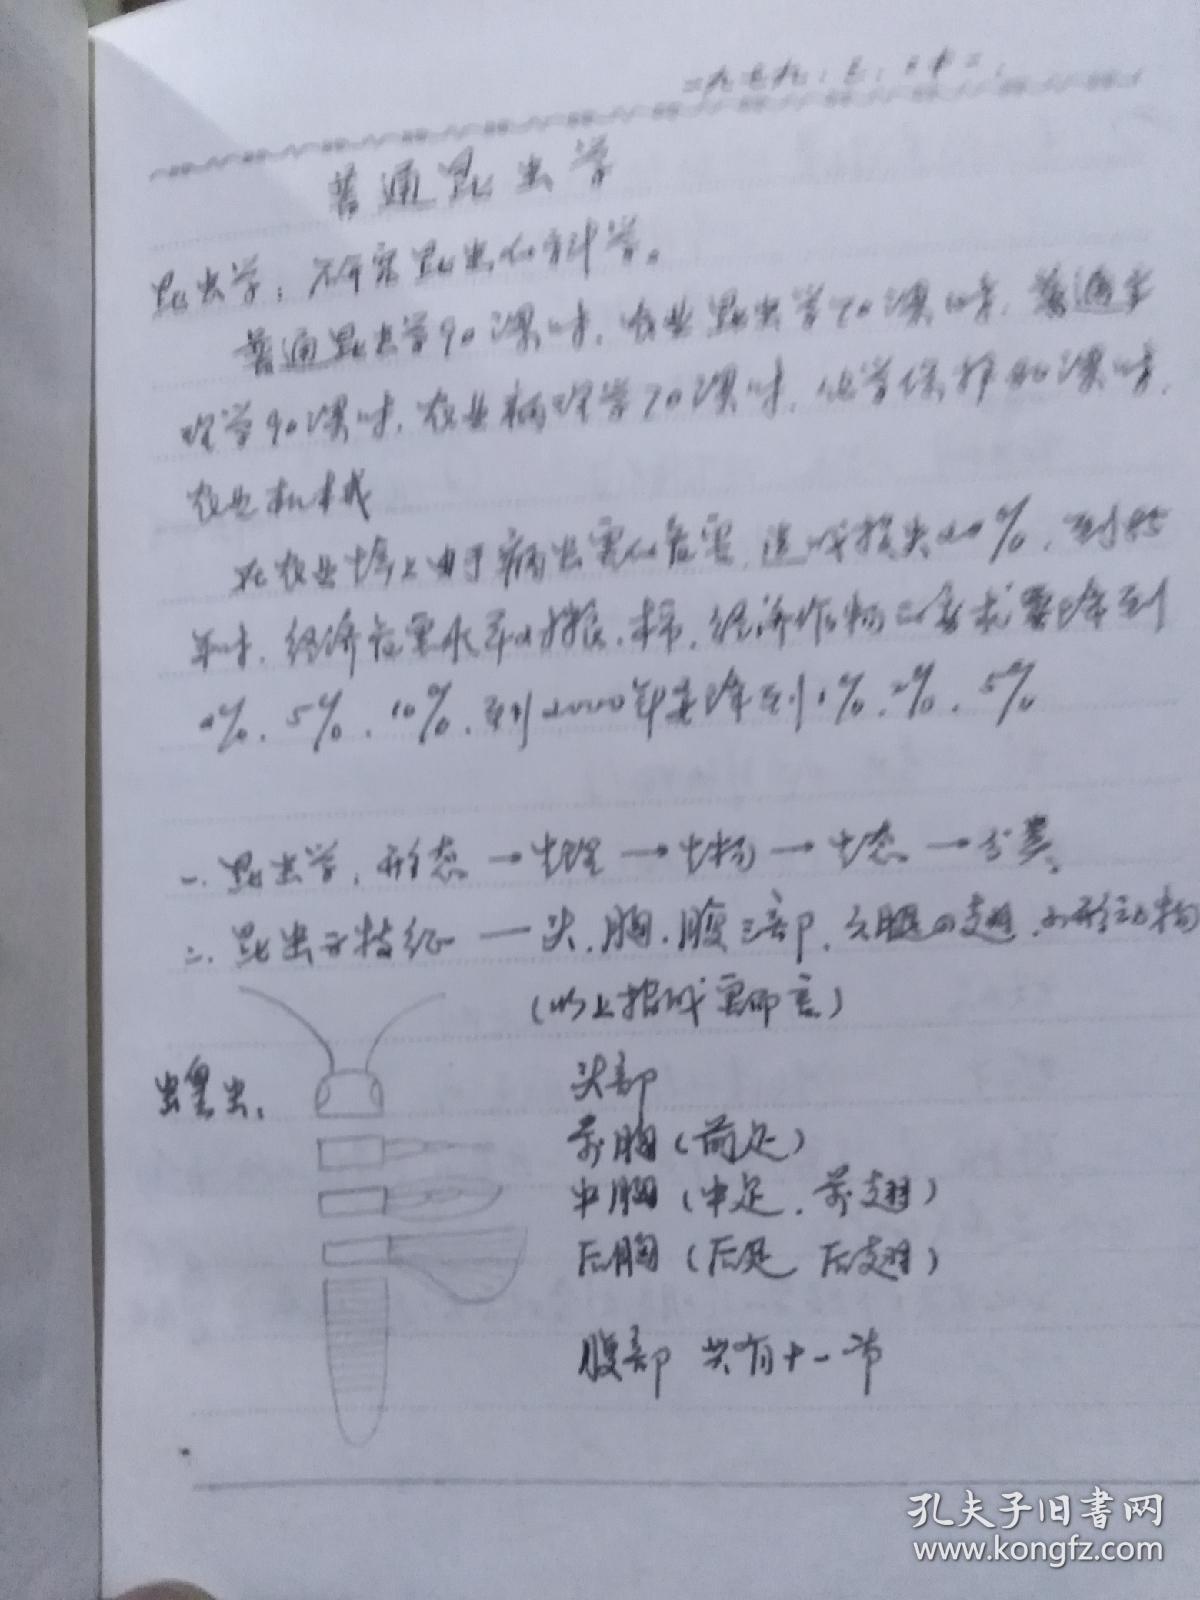 普通昆虫学
昆虫学：研究昆虫的科学。
普通昆虫学90课时，农业昆虫学70课时，普通病
理学90课时，农业病理学70课时，化学保护80课时，
农业机械
在农业生产上由于病虫害的危害，造成损失20%，到85
年时，经济危害水平对粮、棉、经济作物的要求要降到
%、5%、10%，到2000年要降到1%、2%、5%
一. 昆虫学，形态→生理→生物→生态→分类。
二. 昆虫的特征—头、胸、腹三部，六腿四翅，动物
(以上指成虫而言)
蝗虫，
头部
前胸(前足)
中胸(中足、前翅)
后胸(后足 后翅)
腹部 共有十一节
孔夫子旧书网
www.kongfz.com